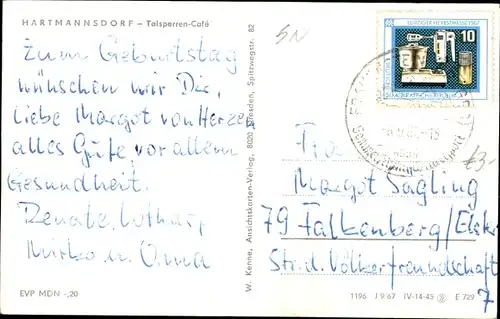 HARTMANNSDORF – Talsperren-Café
Zum Geburtstag
wünschen wir Dir,
liebe Margot von Herzen
alles Gute, vor allem
Gesundheit.
Renate, Lothar,
Mirko u. Oma
EVP MDN -,20
W. Kenne, Ansichtskarten-Verlag, 8020 Dresden, Spitzwegstr. 82
LEIPZIGER HERBSTMESSE 1967
10
Frau
Margot Sagling
79 Falkenberg/Elster
Str. d. Völkerfreundschaft
7
1196 J 9/67 IV-14-45 E 729